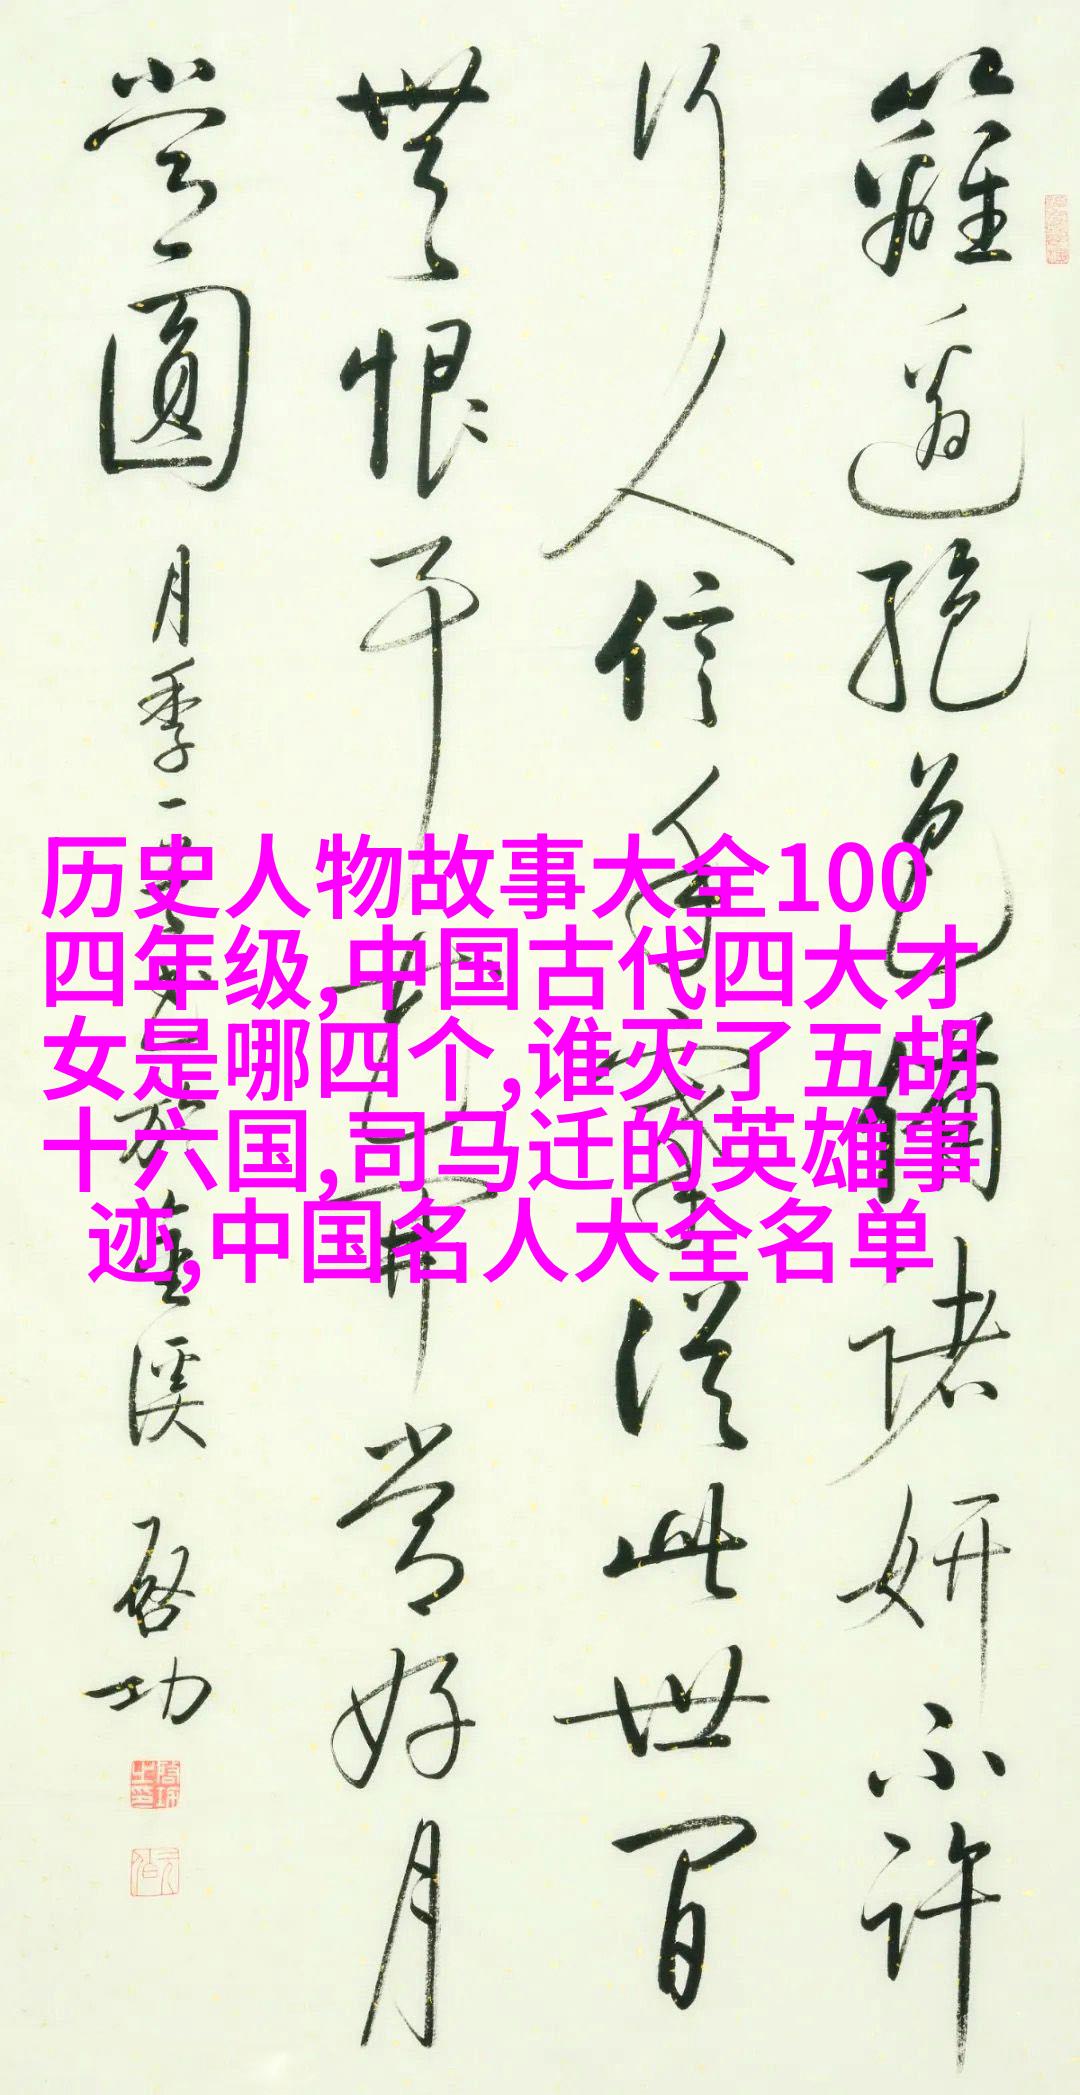 籬邊絕色備諸妍不許
行人信手牽從此世間
無恨事常好月
常圓 月季一
啟功
历史人物故事大全100
四年级,中国古代四大才
女是哪四个,谁灭了五胡
十六国,司马迁的英雄事
迹,中国名人大全名单